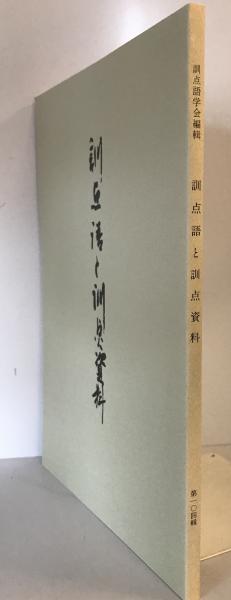 訓点語と訓点資料
訓点語学会編輯
訓点語と訓点資料
第一〇四輯